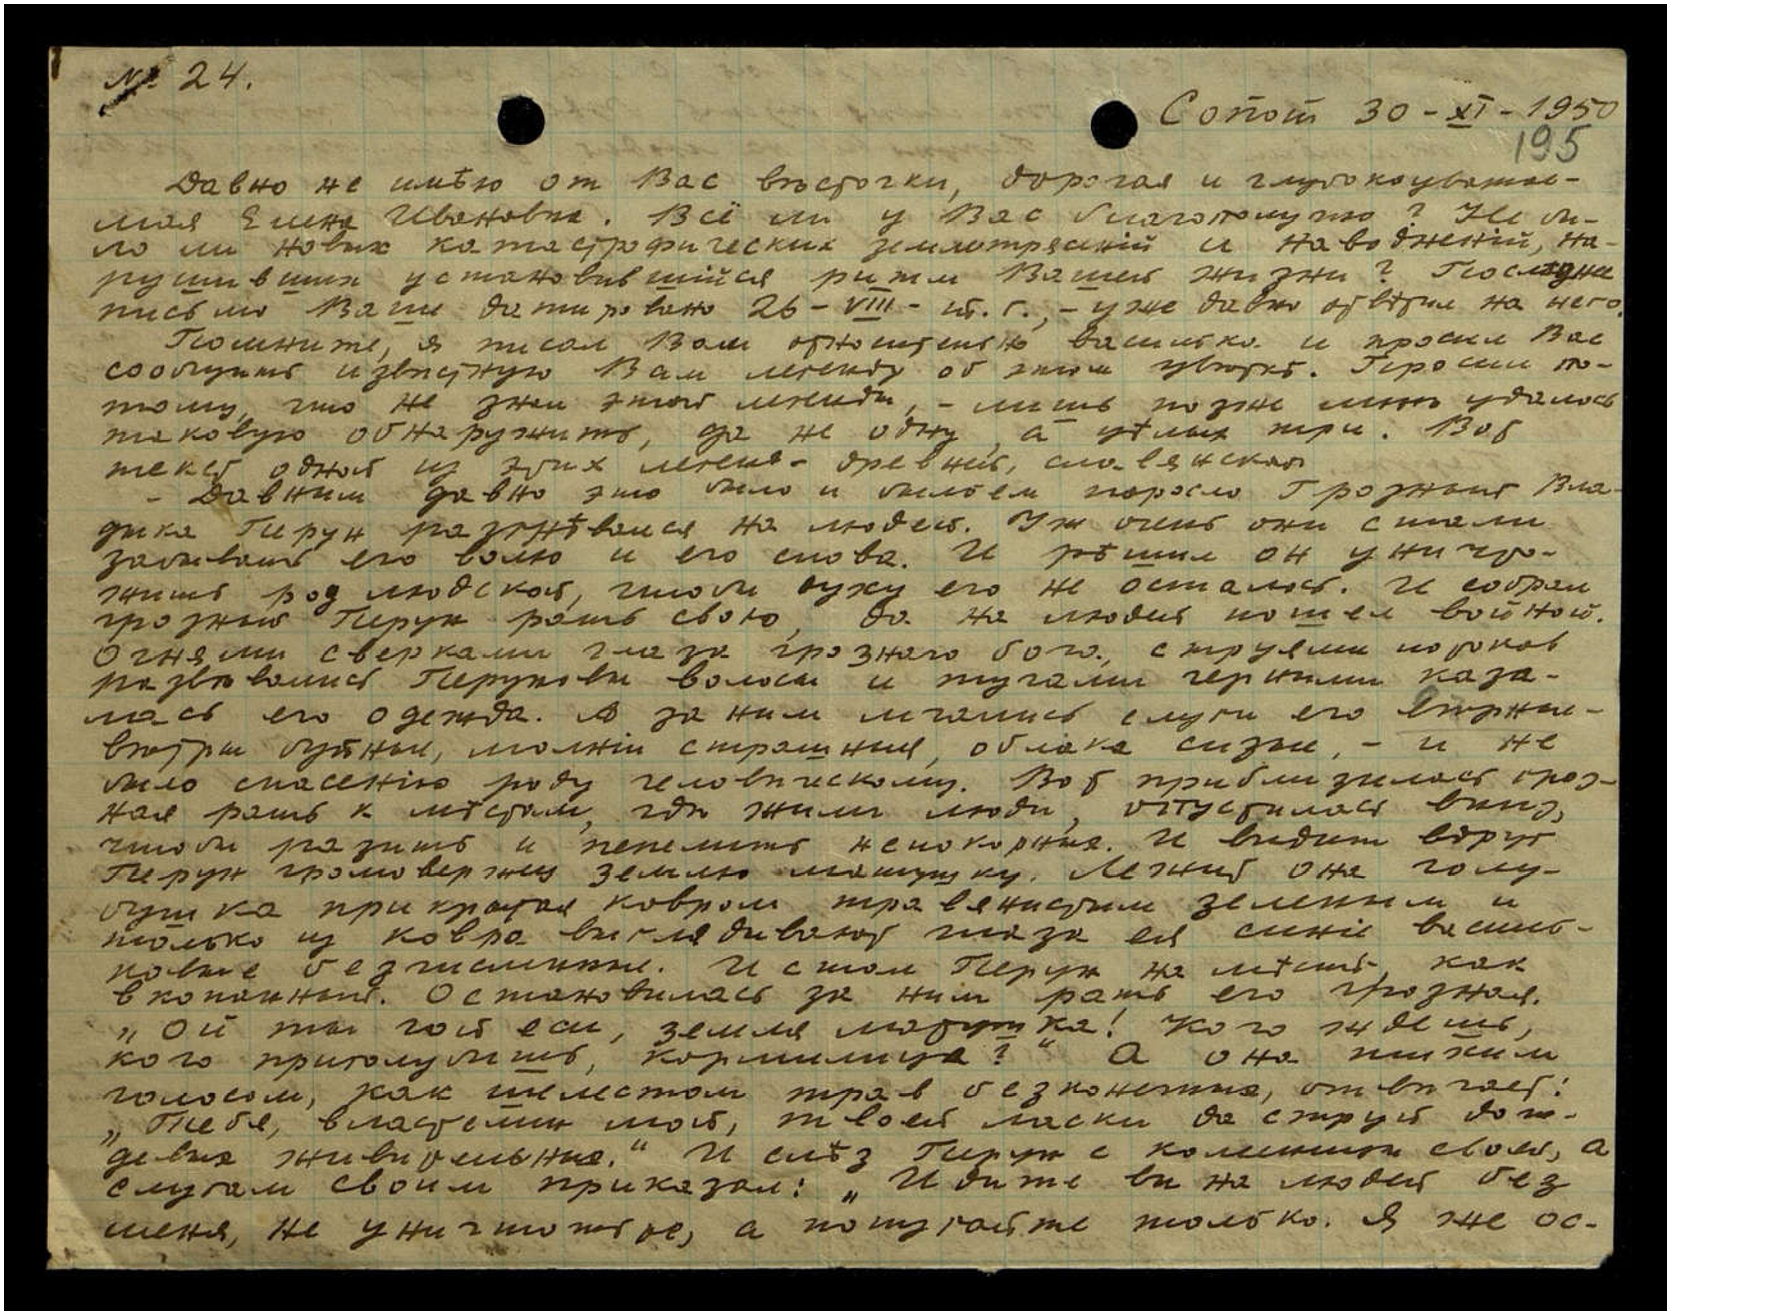 № 24.
Сопот 30 - XI - 1950
195
Давно не имѣю от Вас вѣсточки, дорогая и глубокоуважае-
мая Елена Ивановна. Всё ли у Вас благополучно? Не бы-
ло ли новых катастрофических землетрясений и наводнений, на-
рушивших установившийся ритм Вашей жизни? Последнее
письмо Ваше датировано 26 - VIII - т.г., - уже давно отвѣтил на него.
Помните, я писал Вам относительно василька и просил Вас
сообщить извѣстную Вам легенду об этом цвѣткѣ. Просил по-
тому, что не знал этой легенды, - лишь позже мнѣ удалось
таковую обнаружить, да не одну, а цѣлых три. Вот
текст одной из этих легенд - древней, славянской
- Давным давно это было и быльем поросло Грозный Вла-
дыка Перун разгнѣвался на людей. Уж очень они стали
забывать его волю и его слова. И рѣшил он уничто-
жить род людской, чтобы духу его не осталось. И собрал
грозный Перун рать свою, да на людей пошел войной.
Огнями сверкали глаза грозного бога, струями потоков
развѣвались Перуновы волосы и тучами черными каза-
лась его одежда. А за ним мчались слуги его вѣрные -
вѣтры буйные, молніи страшныя, облака сизые, - и не
было спасенію роду человѣческому. Вот приблизилась гроз-
ная рать к мѣстам, гдѣ жили люди, опустилась вниз,
чтобы разить и пепелить непокорных. И видит вдруг
Перун громовержец землю матушку. Лежит она голу-
бушка прикрытая ковром травянистым зеленым и
только из ковра выглядывают глаза ея синіе василь-
ковые безчисленные. И стал Перун на мѣстѣ, как
вкопанный. Остановилась за ним рать его грозная.
„Ой ты гой еси, земля матушка! Кого ждешь,
кого приголубишь, кормилица?“ А она тихим
голосом, как шелестом трав безконечных, отвѣчает:
„Тебя, властелин мой, твоей ласки да струй дож-
девых живительных.“ И слѣз Перун с колесницы своей, а
слугам своим приказал: „Идите вы на людей без
меня, не уничтожьте, а попугайте только. Я же ос-